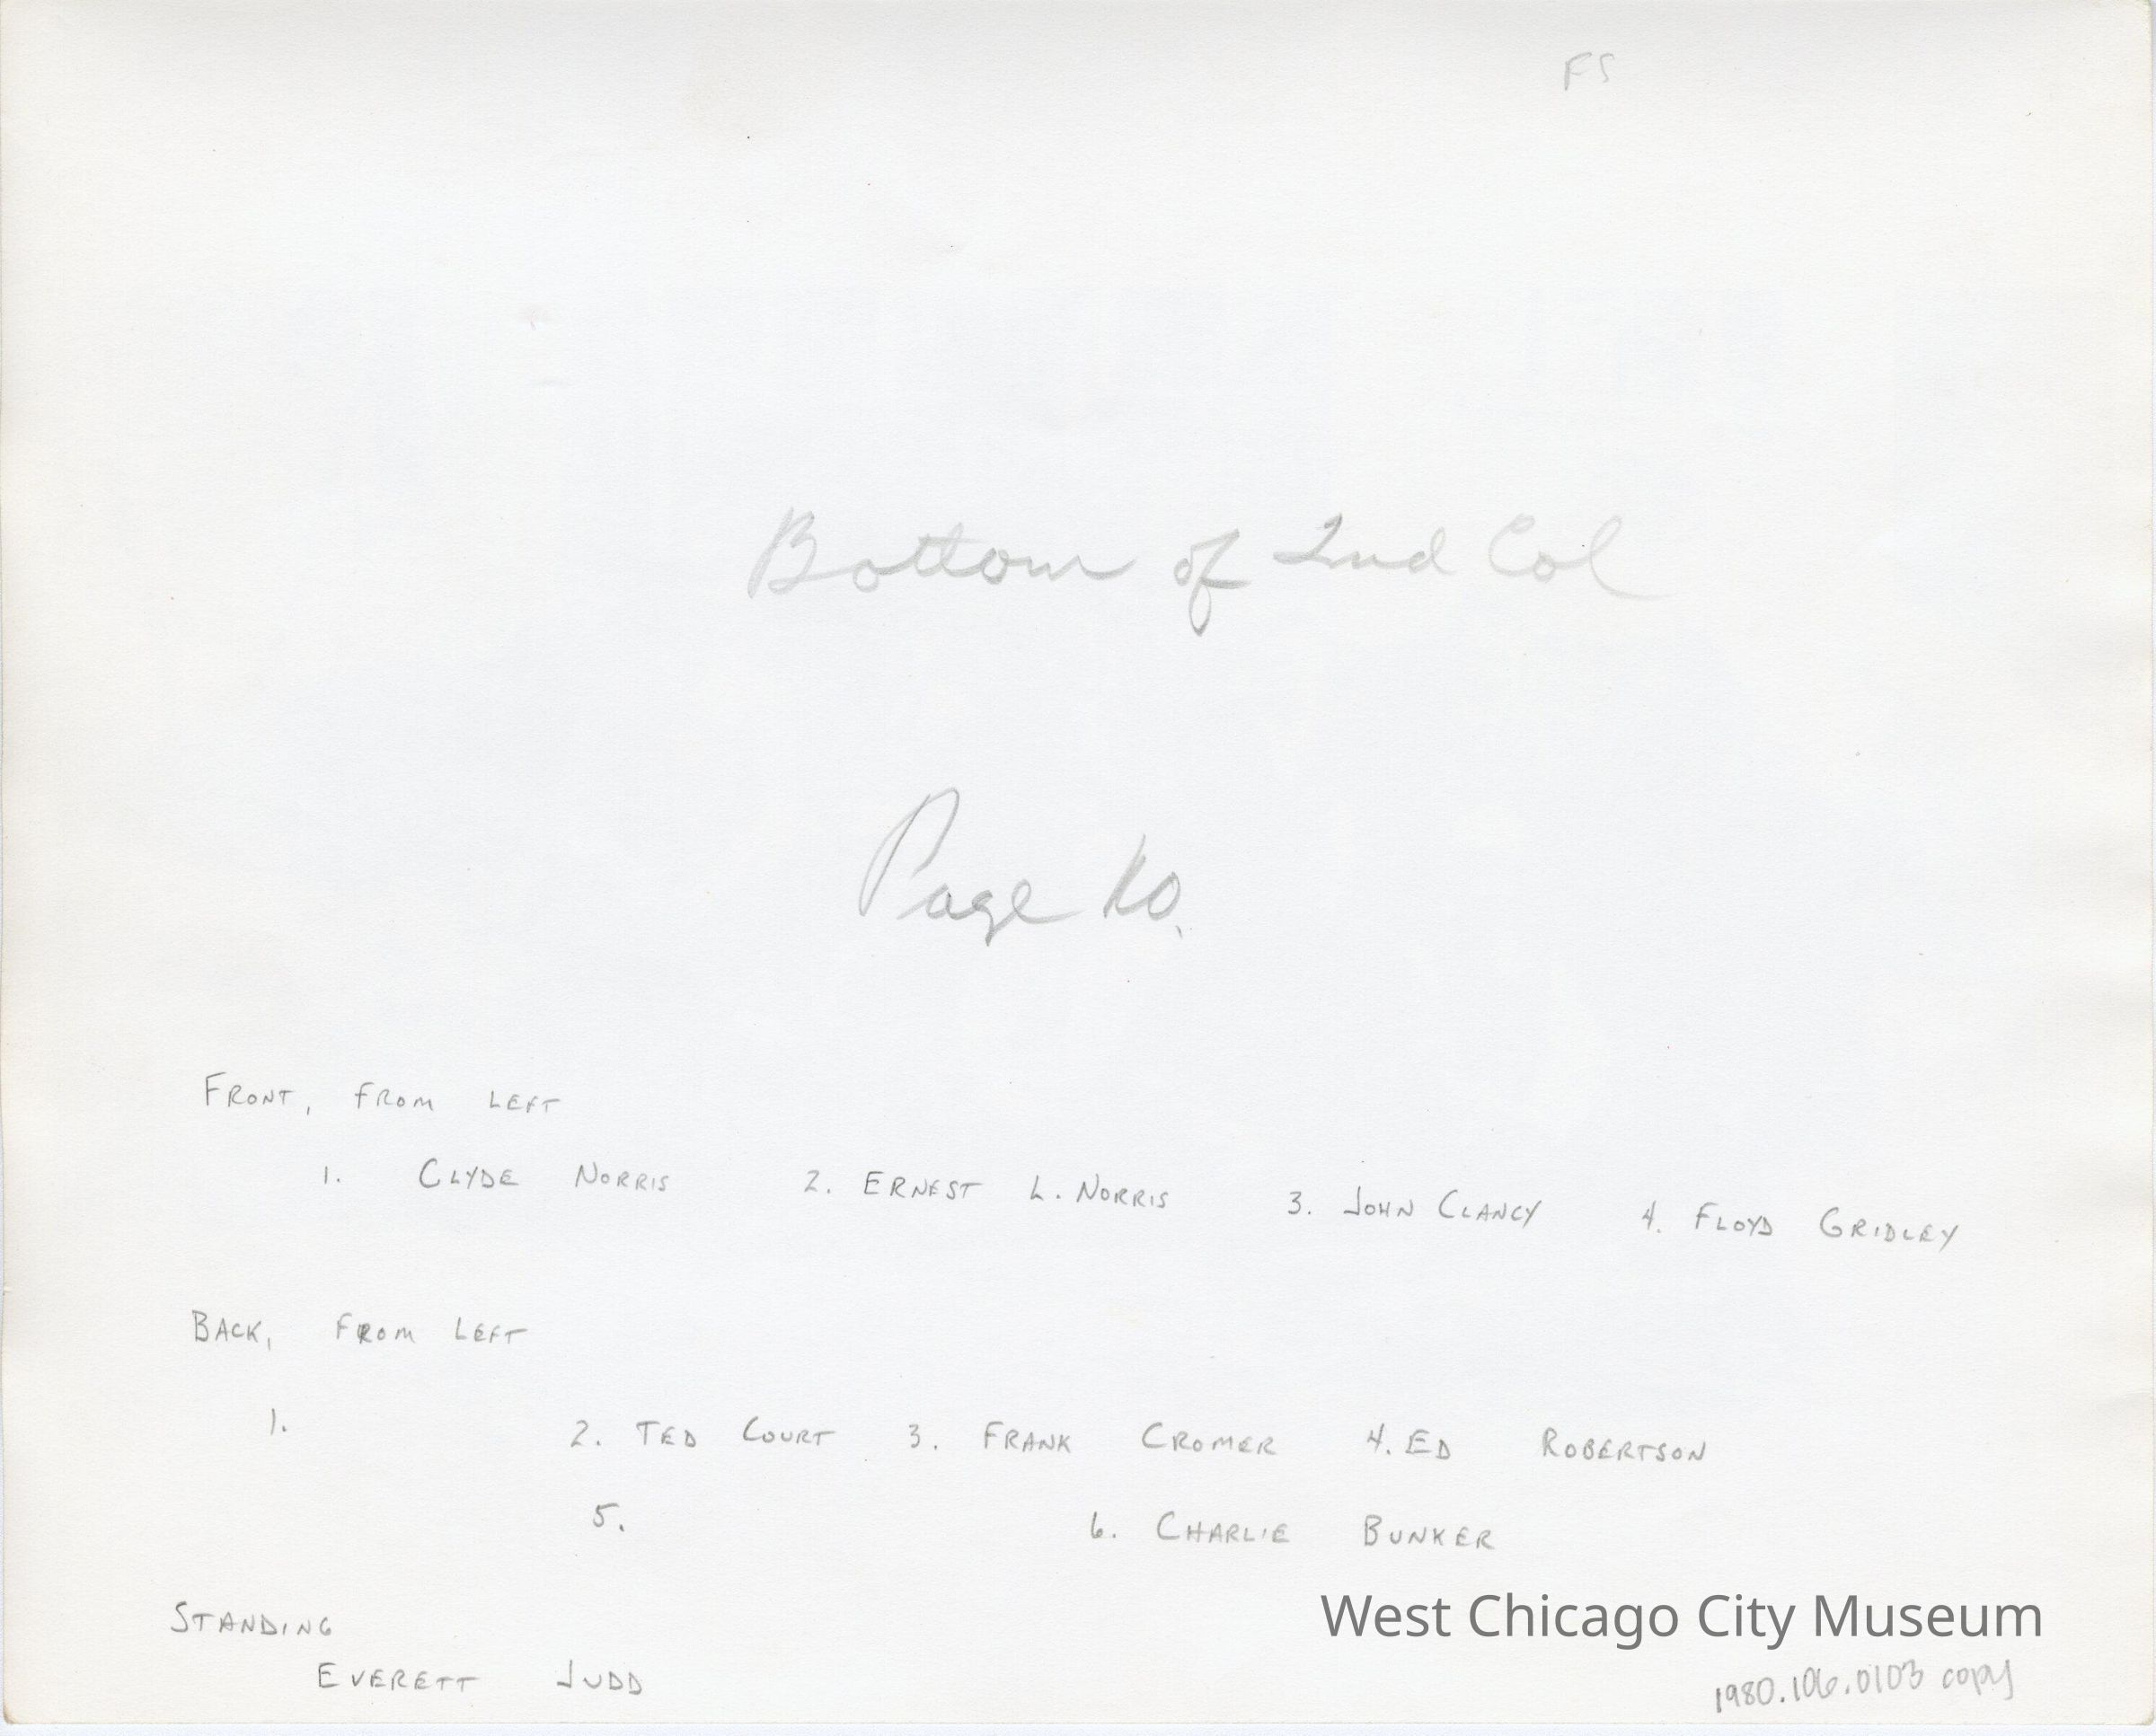 FS
Bottom of 2nd Col
Page 10.
FRONT, FROM LEFT
1. CLYDE NORRIS 2. ERNEST L. NORRIS 3. JOHN CLANCY 4. FLOYD GRIDLEY
BACK, FROM LEFT
1. 2. TED COURT 3. FRANK CROMER 4. ED ROBERTSON
5. 6. CHARLIE BUNKER
STANDING
EVERETT JUDD
West Chicago City Museum
1980.106.0103 copy